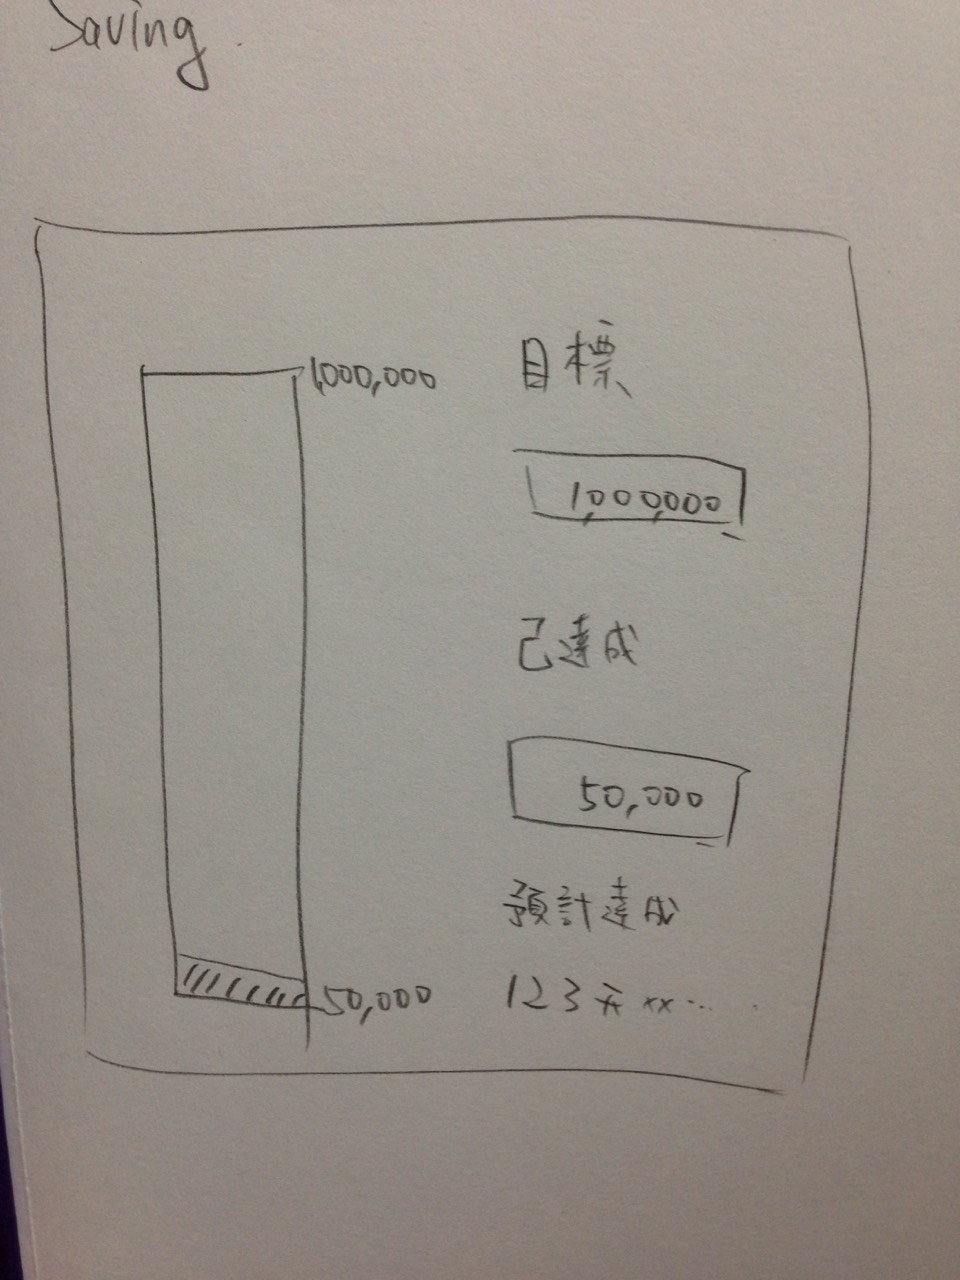 Saving
1,000,000
50,000
目標
1,000,000
己達成
50,000
預計達成
123天 xx...